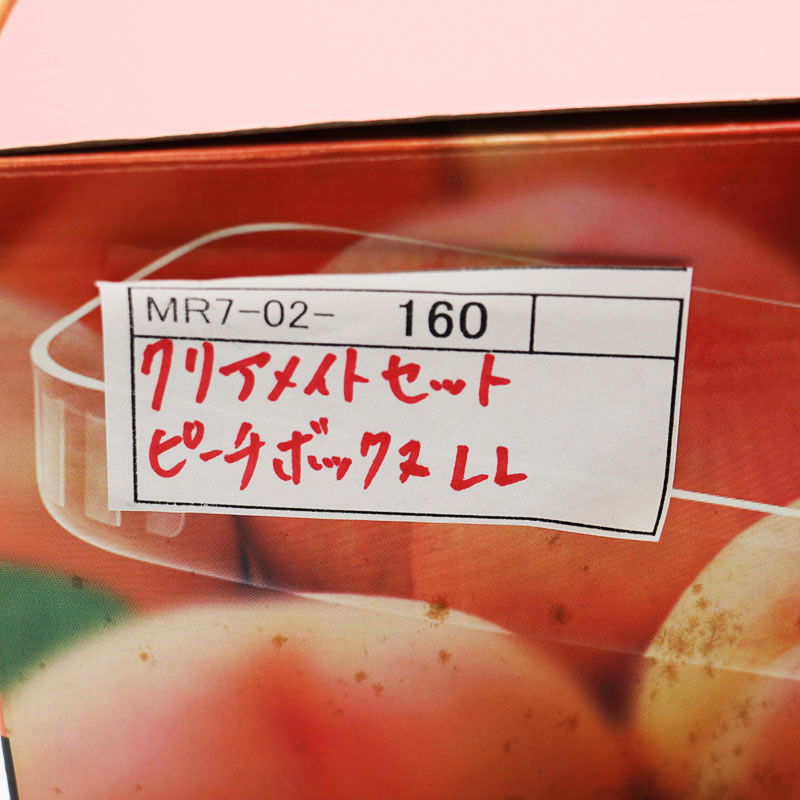 MR7-02- 160
クリアメイトセット
ピーチボックス LL